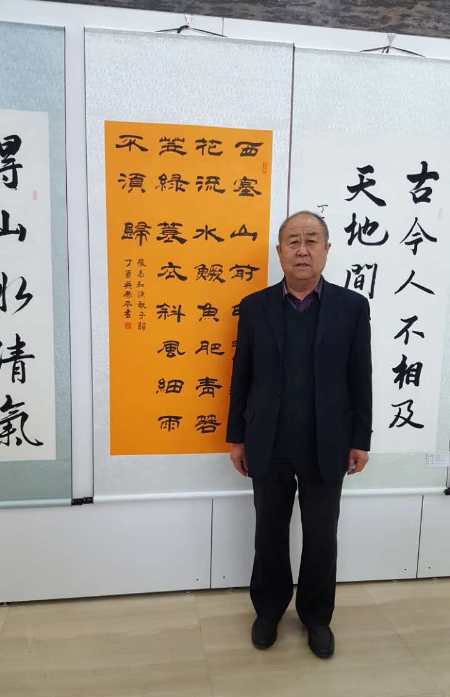 古今人不相及
天地間
丁
西塞山前
花流水鱖魚肥青箬
笠綠蓑衣斜風細雨
不須歸
張志和漁歌子詞
丁酉
得山水清氣